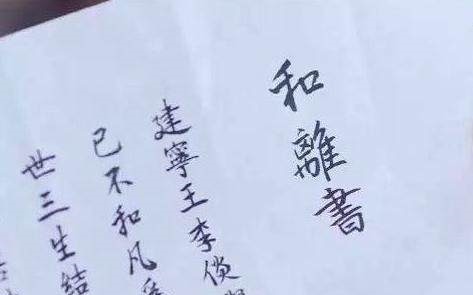 和離書
建寧王李倓
已不和凡
世三生結